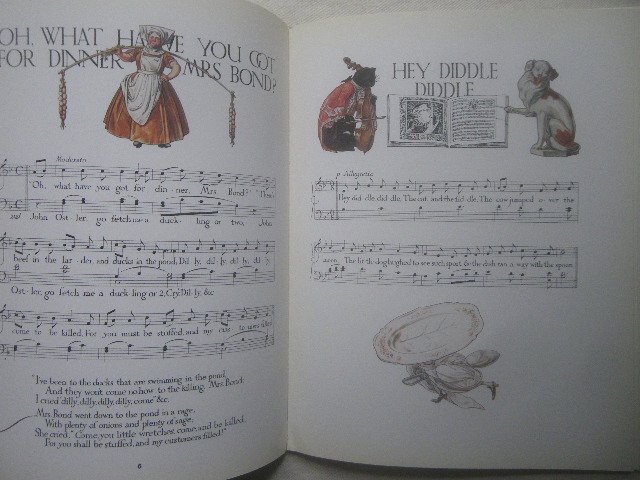 OH, WHAT HAVE YOU GOT
FOR DINNER MRS BOND?
Moderato
Oh, what have you got for din-ner, Mrs. Bond? There's
2nd John Ost-ler, go fetch me a duck-ling or two, John
beef in the lar-der, and ducks in the pond; Dil-ly, dil-ly, dil-ly, dil-ly,
Ost-ler, go fetch me a duck-ling or 2, Cry: Dil-ly, &c
come to be killed, For you must be stuffed, and my cus-to-mers filled!
"I've been to the ducks that are swimming in the pond,
And they won't come no-how to the killing, Mrs Bond;
I cried dilly, dilly, dilly, dilly, come" &c.
Mrs Bond went down to the pond in a rage,
With plenty of onions and plenty of sage;
She cried, "Come, you little wretches, come, and be killed,
For you shall be stuffed, and my customers filled!"
6
HEY DIDDLE
DIDDLE
p Allegretto
Hey did-dle, did-dle, The cat and the fid-dle, The cow jumped o-ver the
moon. The lit-tle dog laughed to see such sport, & the dish ran a-way with the spoon